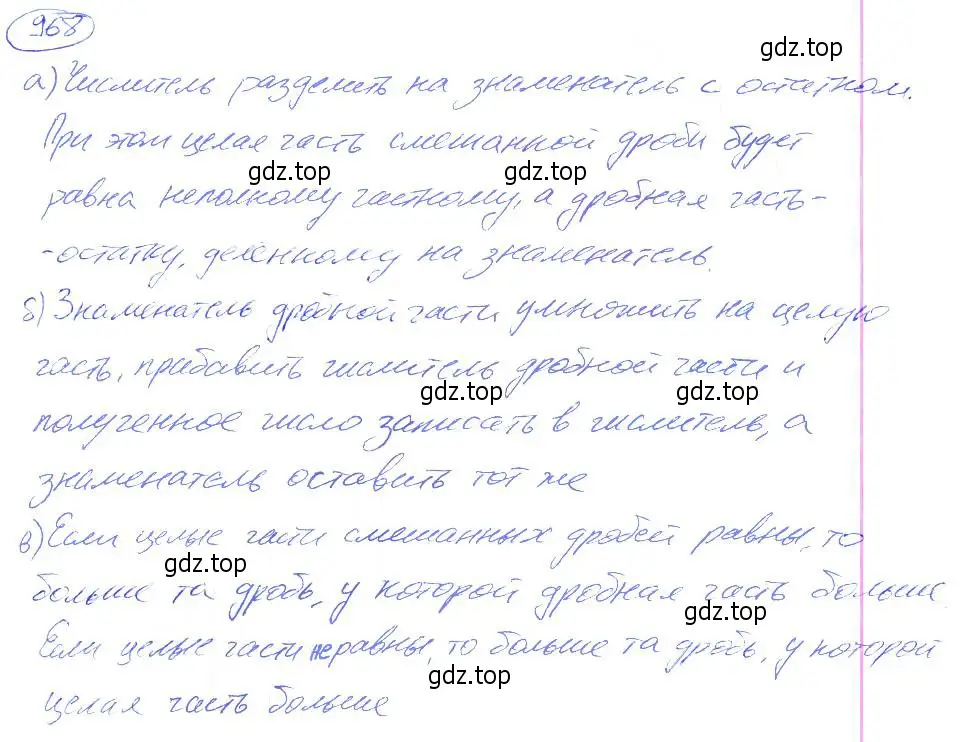 968
gdz.top
а) Числитель разделить на знаменатель с остатком.
При этом целая часть смешанной дроби будет
gdz.top gdz.top
равна неполному частному, а дробная часть-
-остатку, деленному на знаменатель.
б) Знаменатель дробной части умножить на целую
часть, прибавить числитель дробной части и
gdz.top gdz.top
полученное число записать в числитель, а
знаменатель оставить тот же
в) Если целые части смешанных дробей равны, то
gdz.top
больше та дробь, у которой дробная часть больше.
gdz.top
Если целые части не равны, то больше та дробь, у которой
gdz.top
целая часть больше